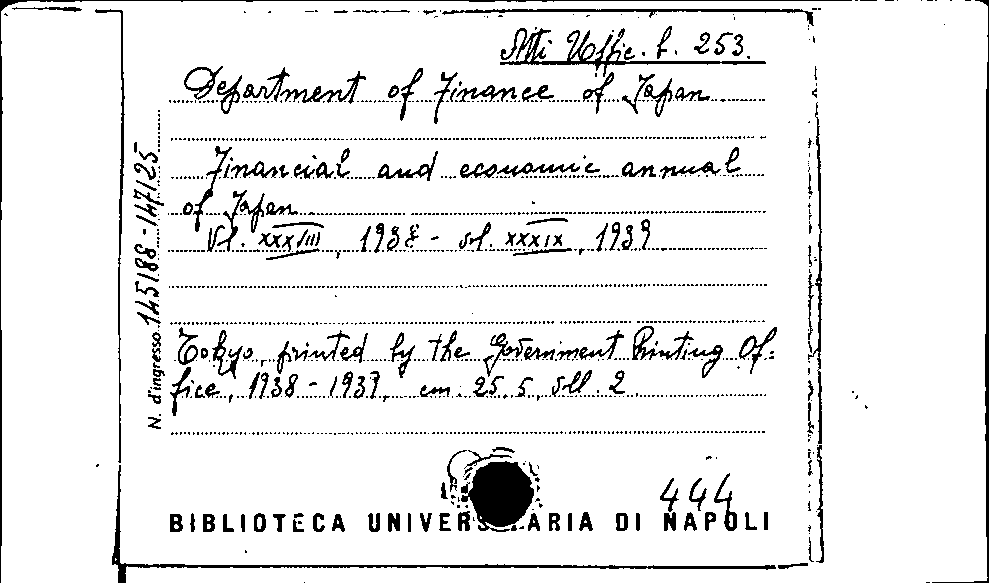 Atti Uffic. f. 253.
Department of Finance of Japan
Financial and economic annual
of Japan
Vl. XXXVIII, 1938 - vl. XXXIX, 1939
Tokyo, printed by the Government Printing Of=
fice, 1938 - 1939, cm. 25,5, vll. 2
N. d'ingresso 145188 - 147125
444
BIBLIOTECA UNIVERSITARIA DI NAPOLI